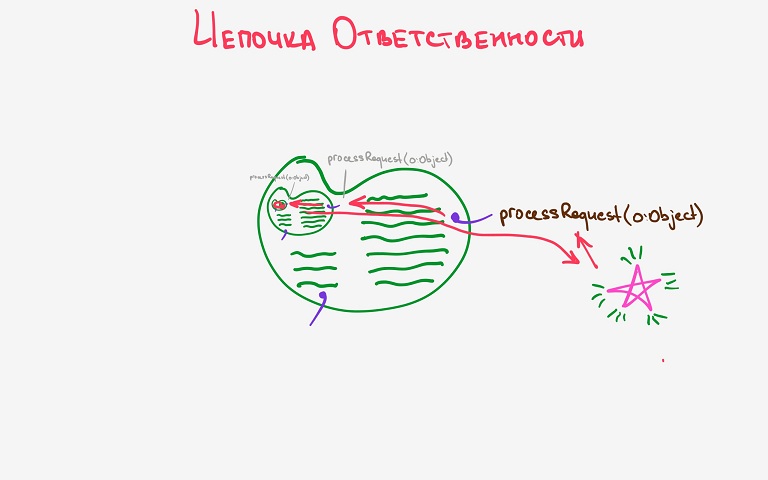 Цепочка Ответственности
processRequest(o:Object)
processRequest(o:Object)
processRequest(o:Object)